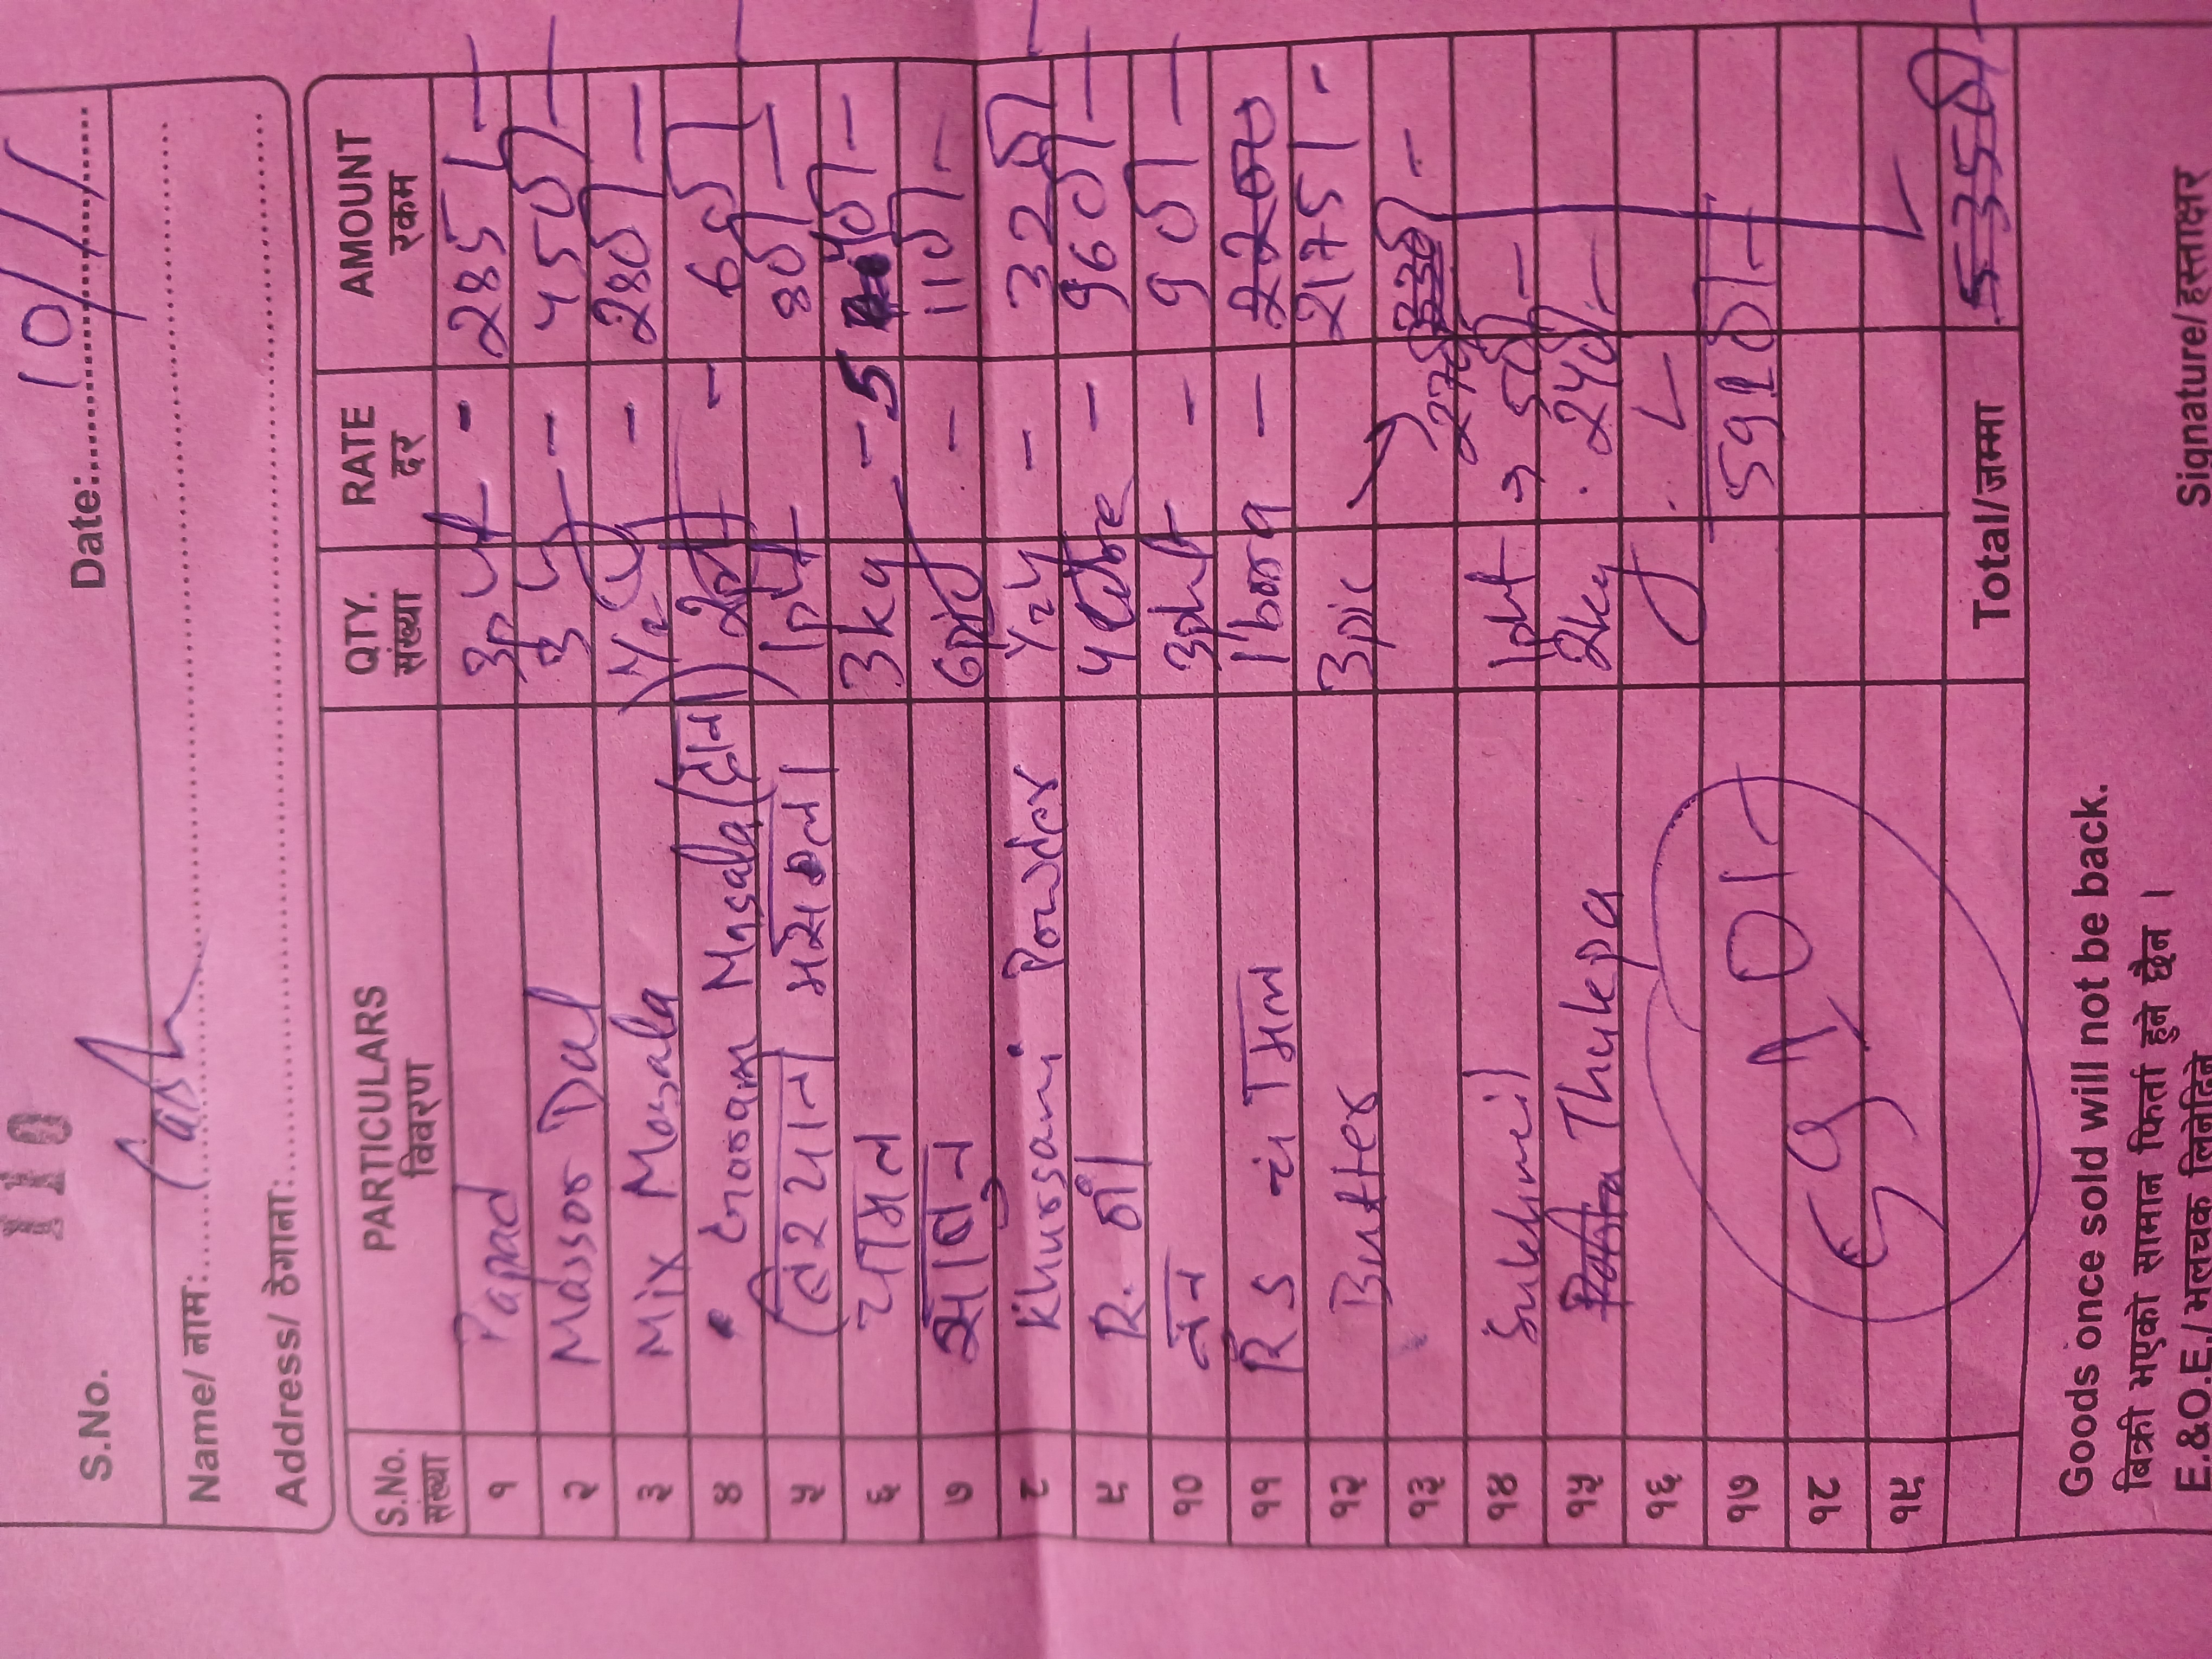 110
S.No. Date: 10/11
Name/ नामः Cash
Address/ ठेगानाः
S.No. संख्या PARTICULARS विवरण QTY. संख्या RATE दर AMOUNT रकम
१ Papad 3pkt - 285/-
२ Massor Dal 3 - 450/-
३ Mix Masala 1/2 - 280/-
४ Garam Masala 2pkt - 60/-
५ बिरयानी मसाला 1pkt 80/-
६ चामल 3kg - 540/-
७ साबुन 6pic - 110/-
८ Khursani Powder 1/2 - 320/-
९ R. 4 - 960/-
१० नुन 3pkt - 90/-
११ RS चामल 1 bora - 2200
१२ Butter 3pic 2175/-
१३ 270 330/-
१४ Sukhmeil 1pkt → 50/-
१५ Thukpa 2kg 240/-
१६
१७ 5910/-
5910/-
१८
१९
Total/जम्मा 5350/-
Goods once sold will not be back.
बिक्री भएको सामान फिर्ता हुने छैन ।
E.&O.E./ भुलचुक लिनेदिने
Signature/ हस्ताक्षर